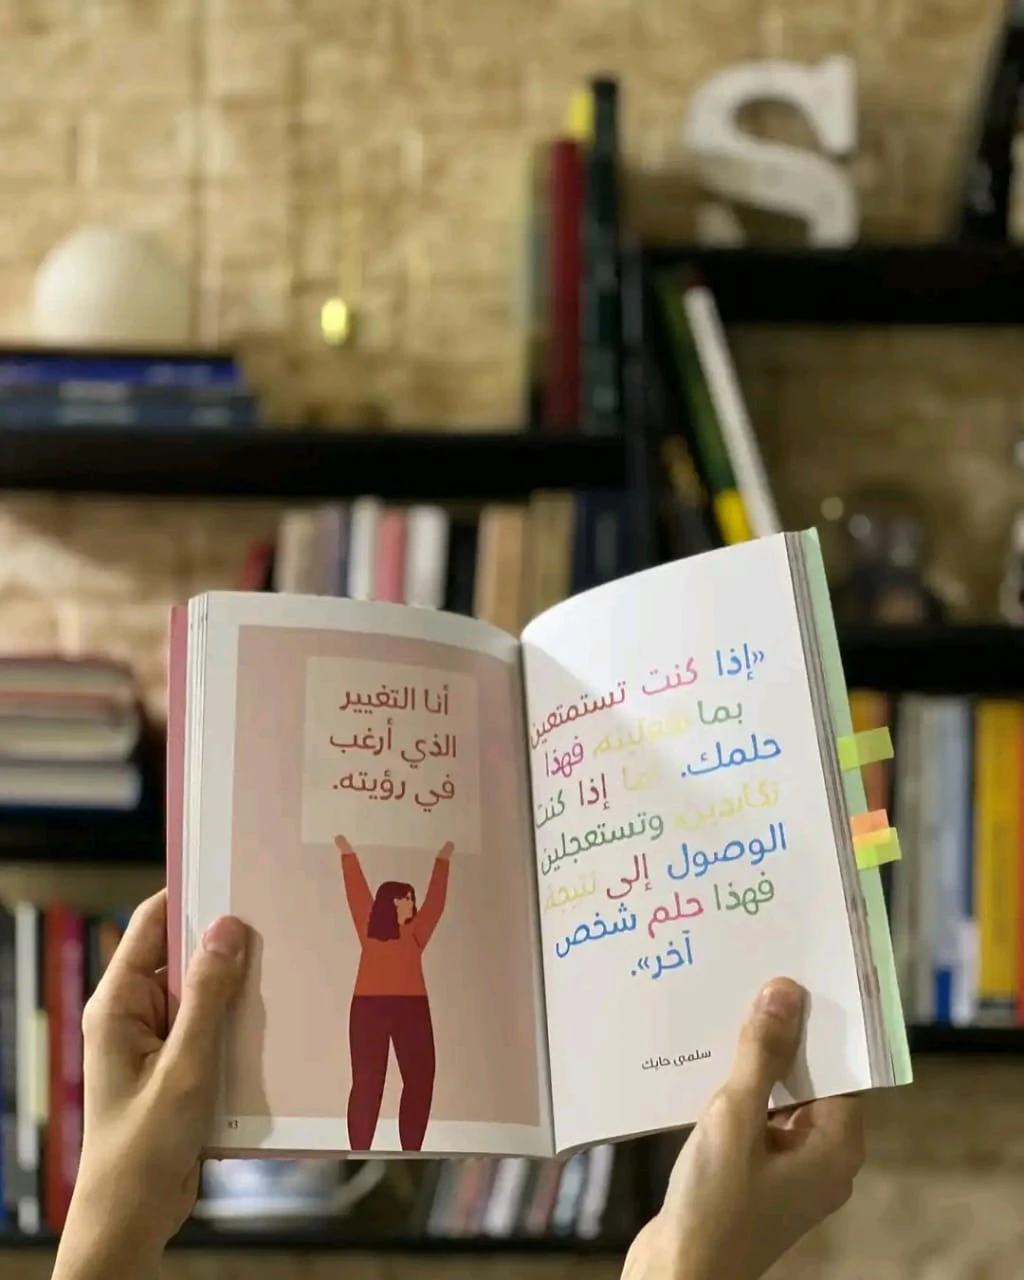 أنا التغيير
الذي أرغب
في رؤيته.
83
«إذا كنت تستمتعين
بما تفعلينه فهذا
حلمك. أما إذا كنت
تكابدين، وتستعجلين
الوصول إلى نتيجة
فهذا حلم شخص
آخر».
سلمى حايك
S